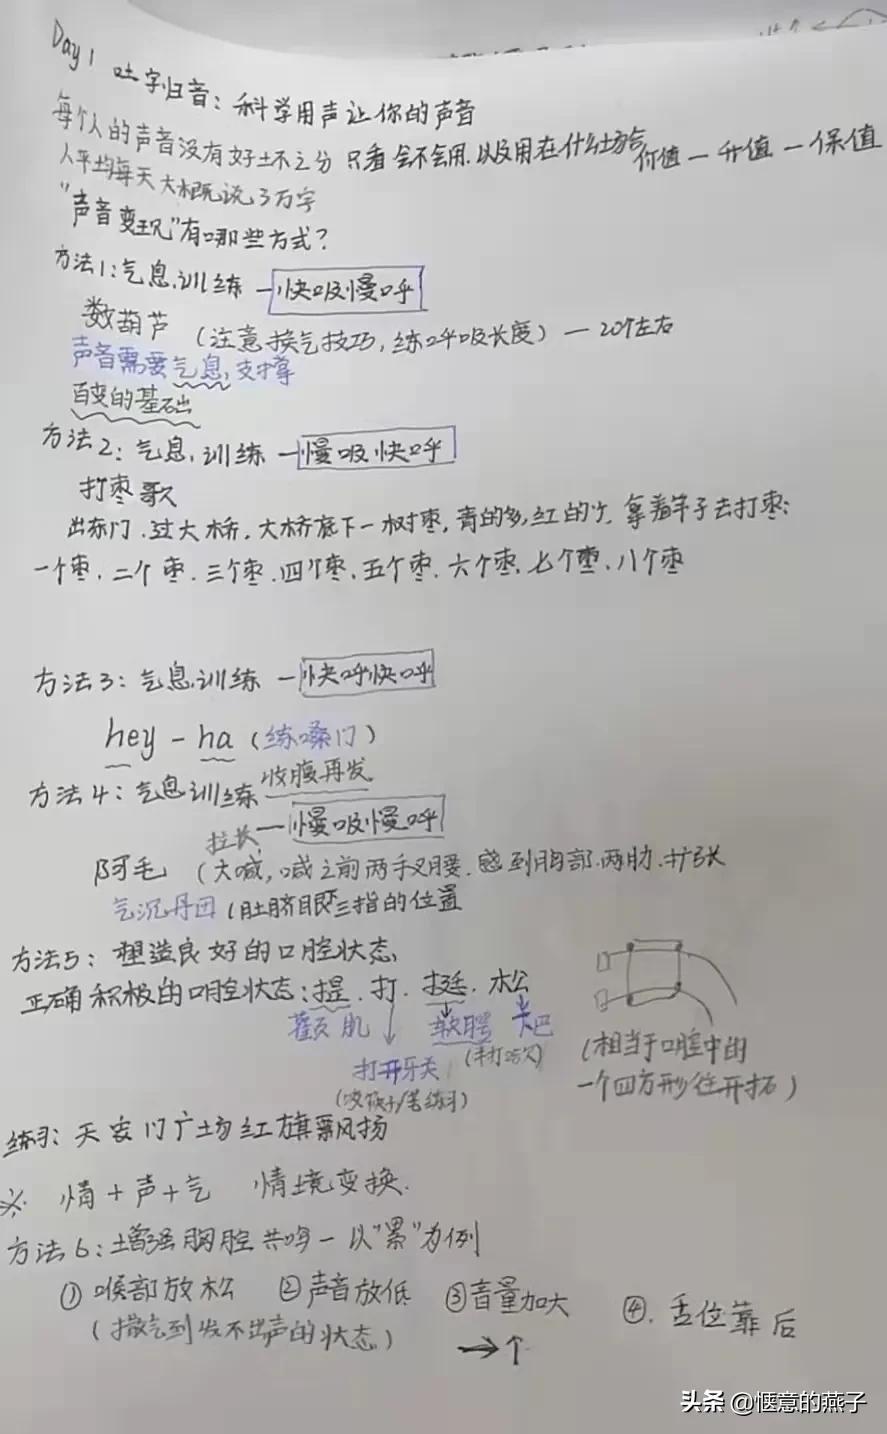 Day 1 吐字归音：科学用声让你的声音
每个人的声音没有好坏之分 只看会不会用.以及用在什么场合 价值—升值—保值
人平均每天大概说3万字
"声音变现"有哪些方式？
方法1：气息训练—快吸慢呼
数葫芦（注意换气技巧，练呼吸长度）—20个左右
声音需要气息支撑
百变的基础
方法2：气息训练—慢吸快呼
打枣歌
出东门.过大桥，大桥底下一树枣，青的多，红的少，拿着竿子去打枣：
一个枣.二个枣.三个枣.四个枣.五个枣.六个枣.七个枣.八个枣
方法3：气息训练—快呼快呼
hey - ha（练嗓门）
收腹再发
方法4：气息训练—慢吸慢呼
拉长
阿毛（大喊，喊之前两手叉腰.感到胸部.两肋.扩张
气沉丹田（肚脐眼下三指的位置
方法5：塑造良好的口腔状态
正确积极的口腔状态：提.打.挺.松
颧肌 软腭 下巴
打开牙关 (半打哈欠)
(咬筷子/苦练习)
（相当于口腔中的
一个四方形往开拓）
练习：天安门广场红旗飘扬
※ 情+声+气 情境变换.
方法6：增强胸腔共鸣—以"累"为例
①喉部放松 ②声音放低 ③音量加大 ④.舌位靠后
（撒气到发不出声的状态）
→↑
头条 @惬意的燕子